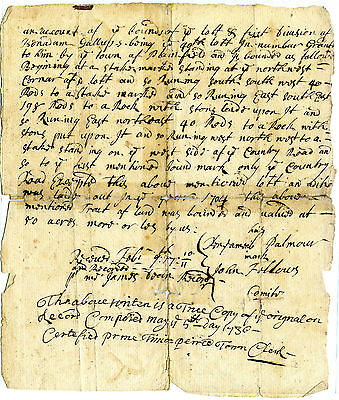 an account of ye bounds of ye lott of first division of
Benadam Gallups being ye 40th lott in number Granted
to him by ye town of Plainfield and is bounded as followeth
Begining at a stake marked standing at ye northwest
Corner of sd lott and so Runing south south west 40
Rods to a stake marked and so Runing East south East
198 Rods to a Rock with stons laide upon It and
so Runing East north East 40 Rods to a Rock with
stons put upon It and so Runing west north west to a
stake standing on ye west side of ye Country Road an
so to ye first mentioned bound mark only ye Country
Road Excepted this above mentioned lott an
was laid out 1704 this above
mentioned Tract of land was bounded and valued at
50 acres more or les by us:
his
Benjamin Palmour
mark
John Fellows
Comitte
Received Feb 9
and Recorded
pr me James Deain Recorder
The above writen is a True Copy of ye original on
Record Compared may ye 5th day 1736
Certified pr me Timo peirce Town Clerk